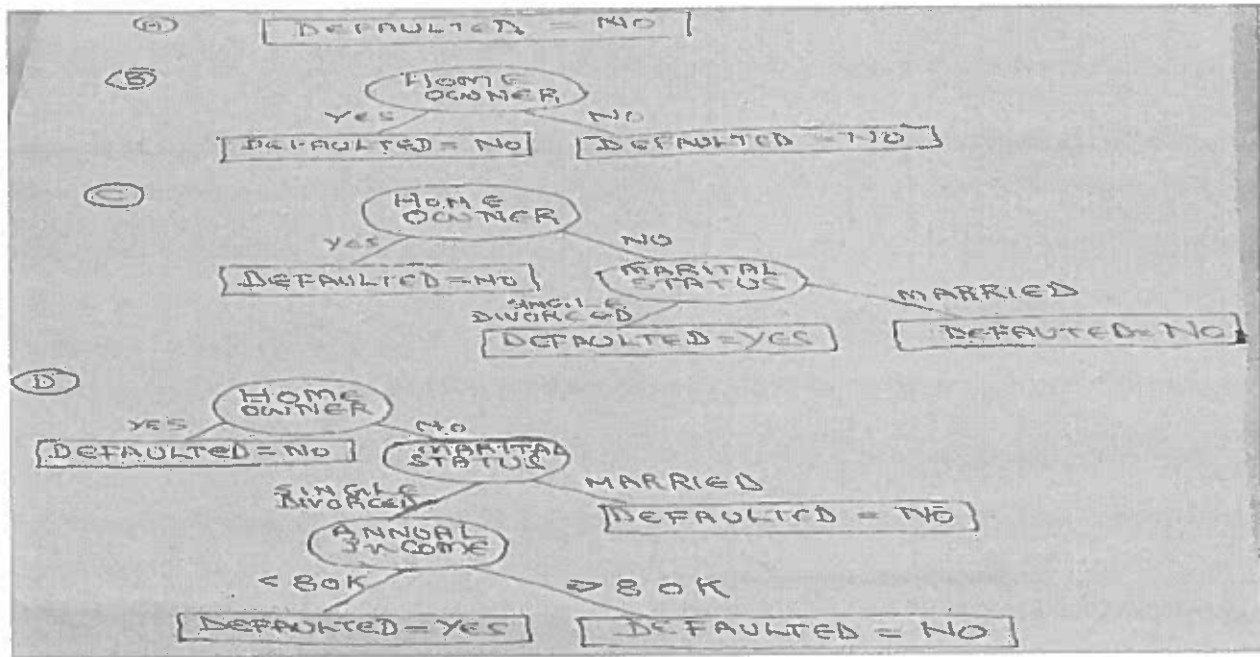 (A) DEFAULTED = NO
(B) HOME
OWNER
YES NO
DEFAULTED = NO DEFAULTED = NO
(C) HOME
OWNER
YES NO
DEFAULTED = NO MARITAL
STATUS
SINGLE
DIVORCED MARRIED
DEFAULTED = YES DEFAUTED = NO
(D) HOME
OWNER
YES NO
DEFAULTED = NO MARITAL
STATUS
SINGLE
DIVORCED MARRIED
DEFAULTED = NO
ANNUAL
INCOME
< 80K => 80K
DEFAULTED = YES DEFAULTED = NO